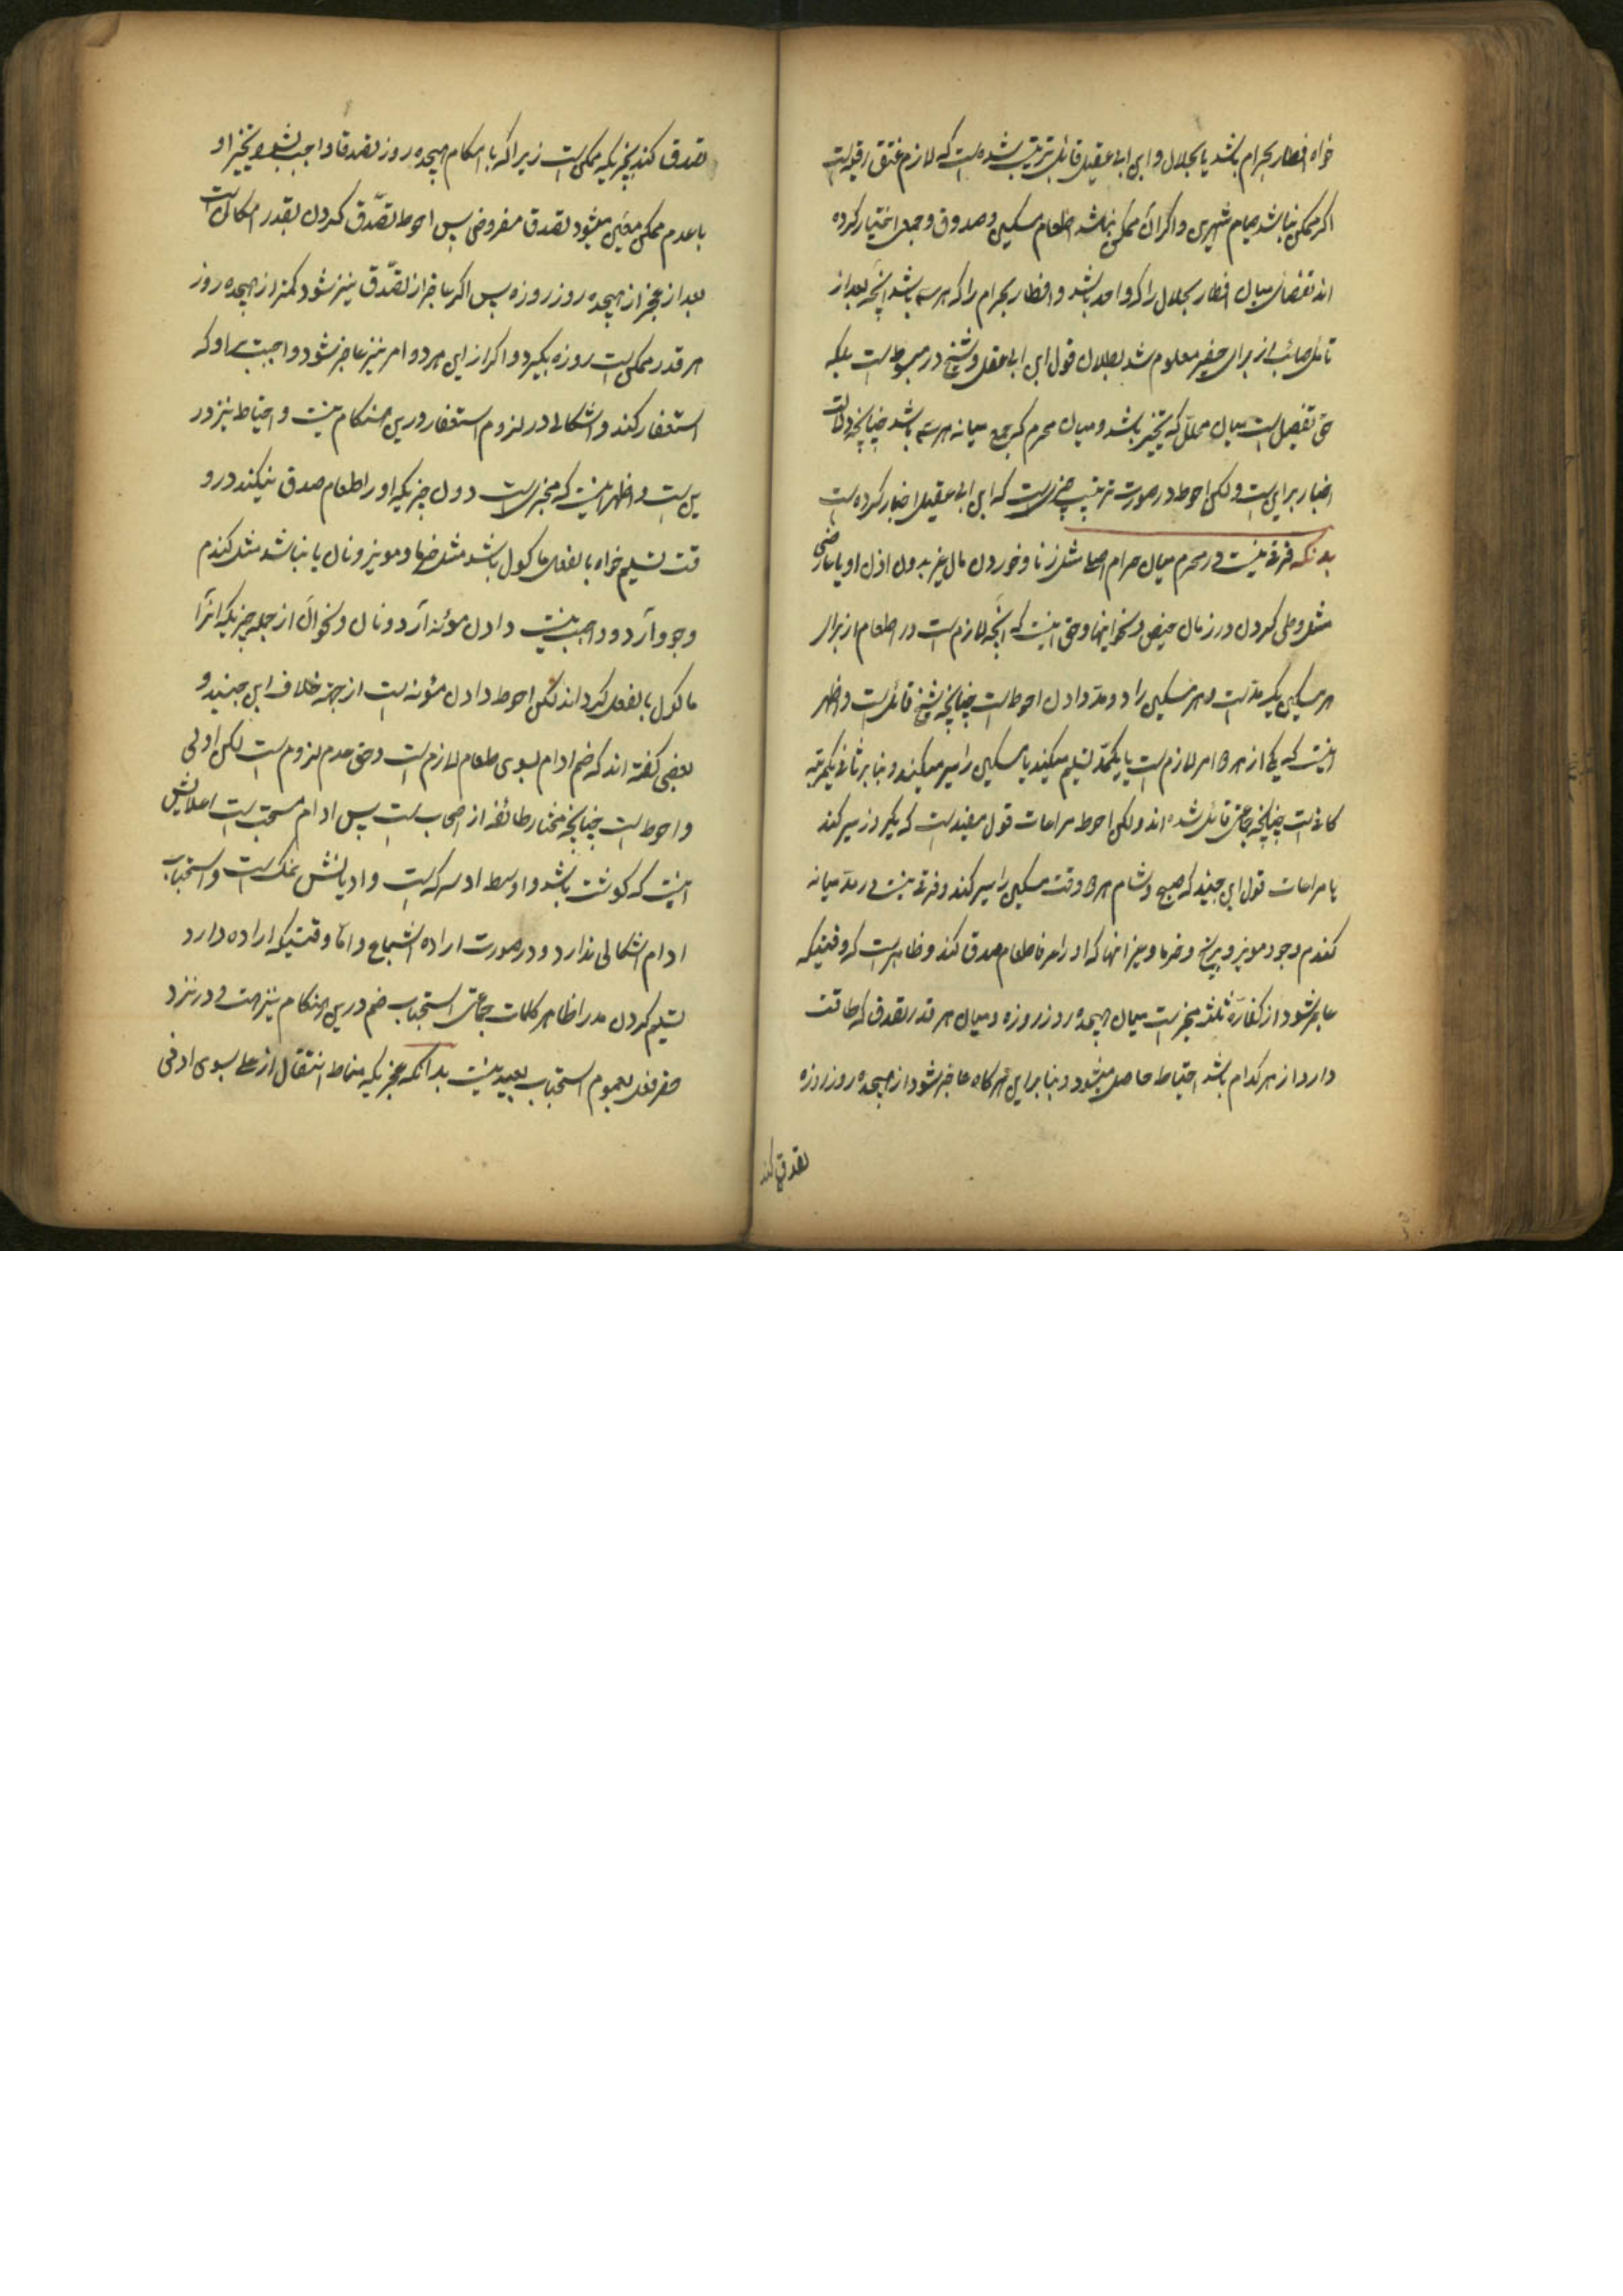 خواه افطار بحرام باشد یا بحلال و ابن ابی عقیل قائل بترتیب شده است که لازم عتق رقبه است
اگر ممکن نباشد صیام شهرین و اگر آن ممکن نباشد اطعام مسکین و صدوق و جمعی اختیار کرده
اند تفصیل میان افطار بحلال را که واحد باشد و افطار بحرام را که هر سه باشد آنچه بعد از
تأمل صائب از برای حقیر معلوم شد بطلان قول ابن ابی عقیل و شیخ در مبسوط است بلکه
حق تفصیل است میان محلل که تخییر باشد و میان محرم که جمع میانه هر سه باشد چنانچه دلالت
اخبار براین است ولکن احوط در صورت ترتیب چیزی است که ابن ابی عقیل اختیار کرده است
بدانکه فرقی نیست در محرم میان حرام اصلی مثل زنا و خوردن مال غیر بدون اذن او یا عارضی
مثل وطی کردن در زمان حیض و نحو اینها و حق اینست که آنچه لازم است در اطعام از برای
هر مسکین یک مد است و هر مسکین را دو مد دادن احوط است چنانچه شیخ قائل است و اظهر
اینست که یکی از هر دو امر لازم است یا یکمد تسلیم میکند یا مسکین را سیر میکند و بنابر ثانی یکمرتبه
کافیست چنانچه جماعتی قائل شده اند ولکن احوط مراعات قول مفید است که یکروز سیر کند
یا مراعات قول ابن جنید که صبح و شام هر دو وقت مسکین را سیر کند و فرقی نیست در مد میانه
گندم و جو و مویز و برنج و خرما و غیر اینها که او را عرفا طعام صدق کند و ظاهر است که وقتیکه
عاجز شود از کفاره ثلثه مخیر است میان هیجده روز روزه و میان هر قدر تصدق که طاقت
دارد از هر کدام باشد احتیاط حاصل میشود و بنابراین هر گاه عاجز شود از هیجده روز روزه
تصدق کند
تصدق کند بچیزیکه ممکن است زیرا که با امکان هیجده روز تصدق او واجب نشود و تخییر او
با عدم ممکن معین میشود تصدق مفروض پس احوط تصدق کردن بقدر امکان است
بعد از عجز از هیجده روز روزه پس اگر عاجز از تصدق نیز شود کمتر از هیجده روز
هر قدر ممکن است روزه بگیرد و اگر از این هر دو امر نیز عاجز شود واجبست بر او که
استغفار کند و اشکالی در لزوم استغفار درین هنگام نیست و احتیاط نیز در
این است و اظهر اینست که مجزی است دون چیزیکه او را طعام صدق نیکند درو
قت تسلیم خواه بالفعل ماکول باشد مثل خرما و مویز و نان یا نباشد مثل گندم
و جو و آرد و واجب نیست دادن مؤنه آرد و نان و نحو آن از جمله چیزیکه آنرا
ماکول بالفعل کرداند لکن احوط دادن مؤنه است از جهة خلاف ابن جنید و
بعضی گفته اند که ضم ادام بسوی طعام لازم است و حق عدم لزوم است لکن اولی
و احوط است چنانچه مختار طائفه از اصحاب است پس ادام مستحب است اعلایش
اینست که گوشت باشد و اوسط او سرکه است و ادنایش نمک است و استحباب
ادام اشکالی ندارد و در صورت اراده اشباع و اما وقتیکه اراده دارد
تسلیم کردن مد را ظاهر کلمات جماعتی استحباب ضم درین هنگام نیز هست و در نزد
حقر فعل بعموم استحباب بعید نیست بدانکه عجزیکه مناط انتقال از اعلی بسوی ادنی